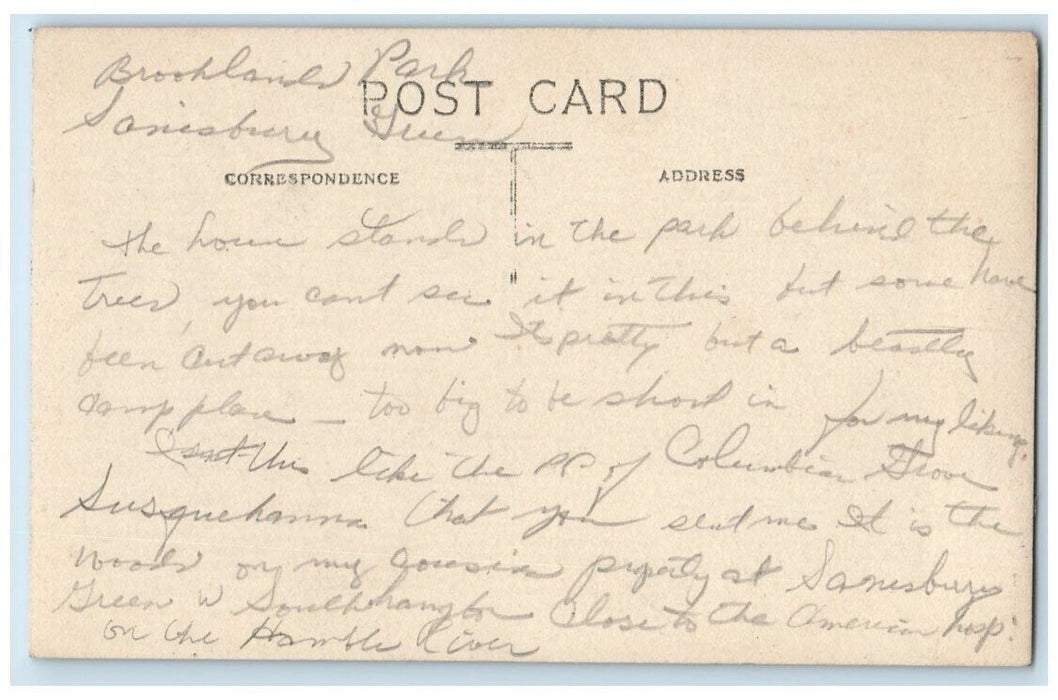 Brooklands Park
POST CARD
Sarisbury Green
CORRESPONDENCE
ADDRESS
the house stands in the park behind the
trees, you cant see it in this but some have
been cut away now Its pretty but a beastly
damp place – too big to be shut in for my liking.
Isnt this like the PC of Columbian Grove
Susquehanna that you sent me It is the
woods on my cousins property at Sarisbury
Green Southhampton Close to the American hosp:
on the Hamble River